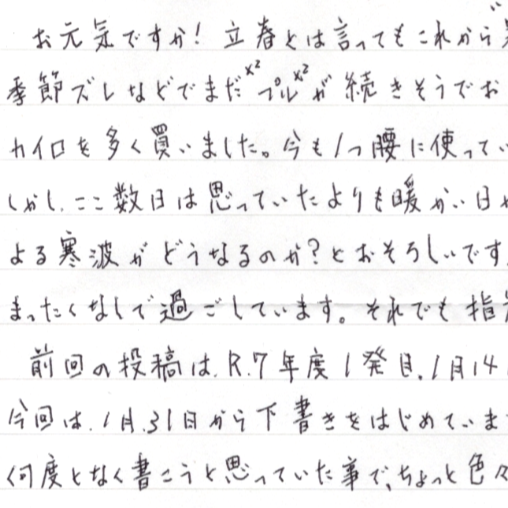 お元気ですか！立春とは言ってもこれから
季節ズレなどでまだ゛×²プル×²が続きそうでお
カイロを多く買いました。今も1つ腰に使ってい
しかし、ここ数日は思っていたよりも暖かい日
よる寒波がどうなるのか？とおそろしいです
まったくなしで過ごしています。それでも指
前回の投稿は、R.7年度1発目、1月14
今回は、1月、31日から下書きをはじめていま
何度となく書こうと思っていた事で、ちょっと色々